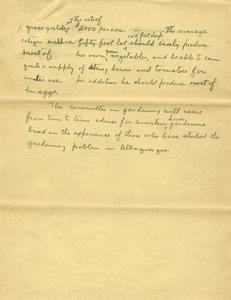 the rate of
gross yields, 2000 per acre. The average
citizen with a fifty foot lot should easily produce
most of his own vegetables, and be able to can
quite a supply of string beans and tomatoes for
winter use. In addition he should produce most of
his eggs.
The committee on gardening will issue
from time to time advice for amateur gardeners
home
based on the experiences of those who have studied the
gardening problem in Albuquerque.